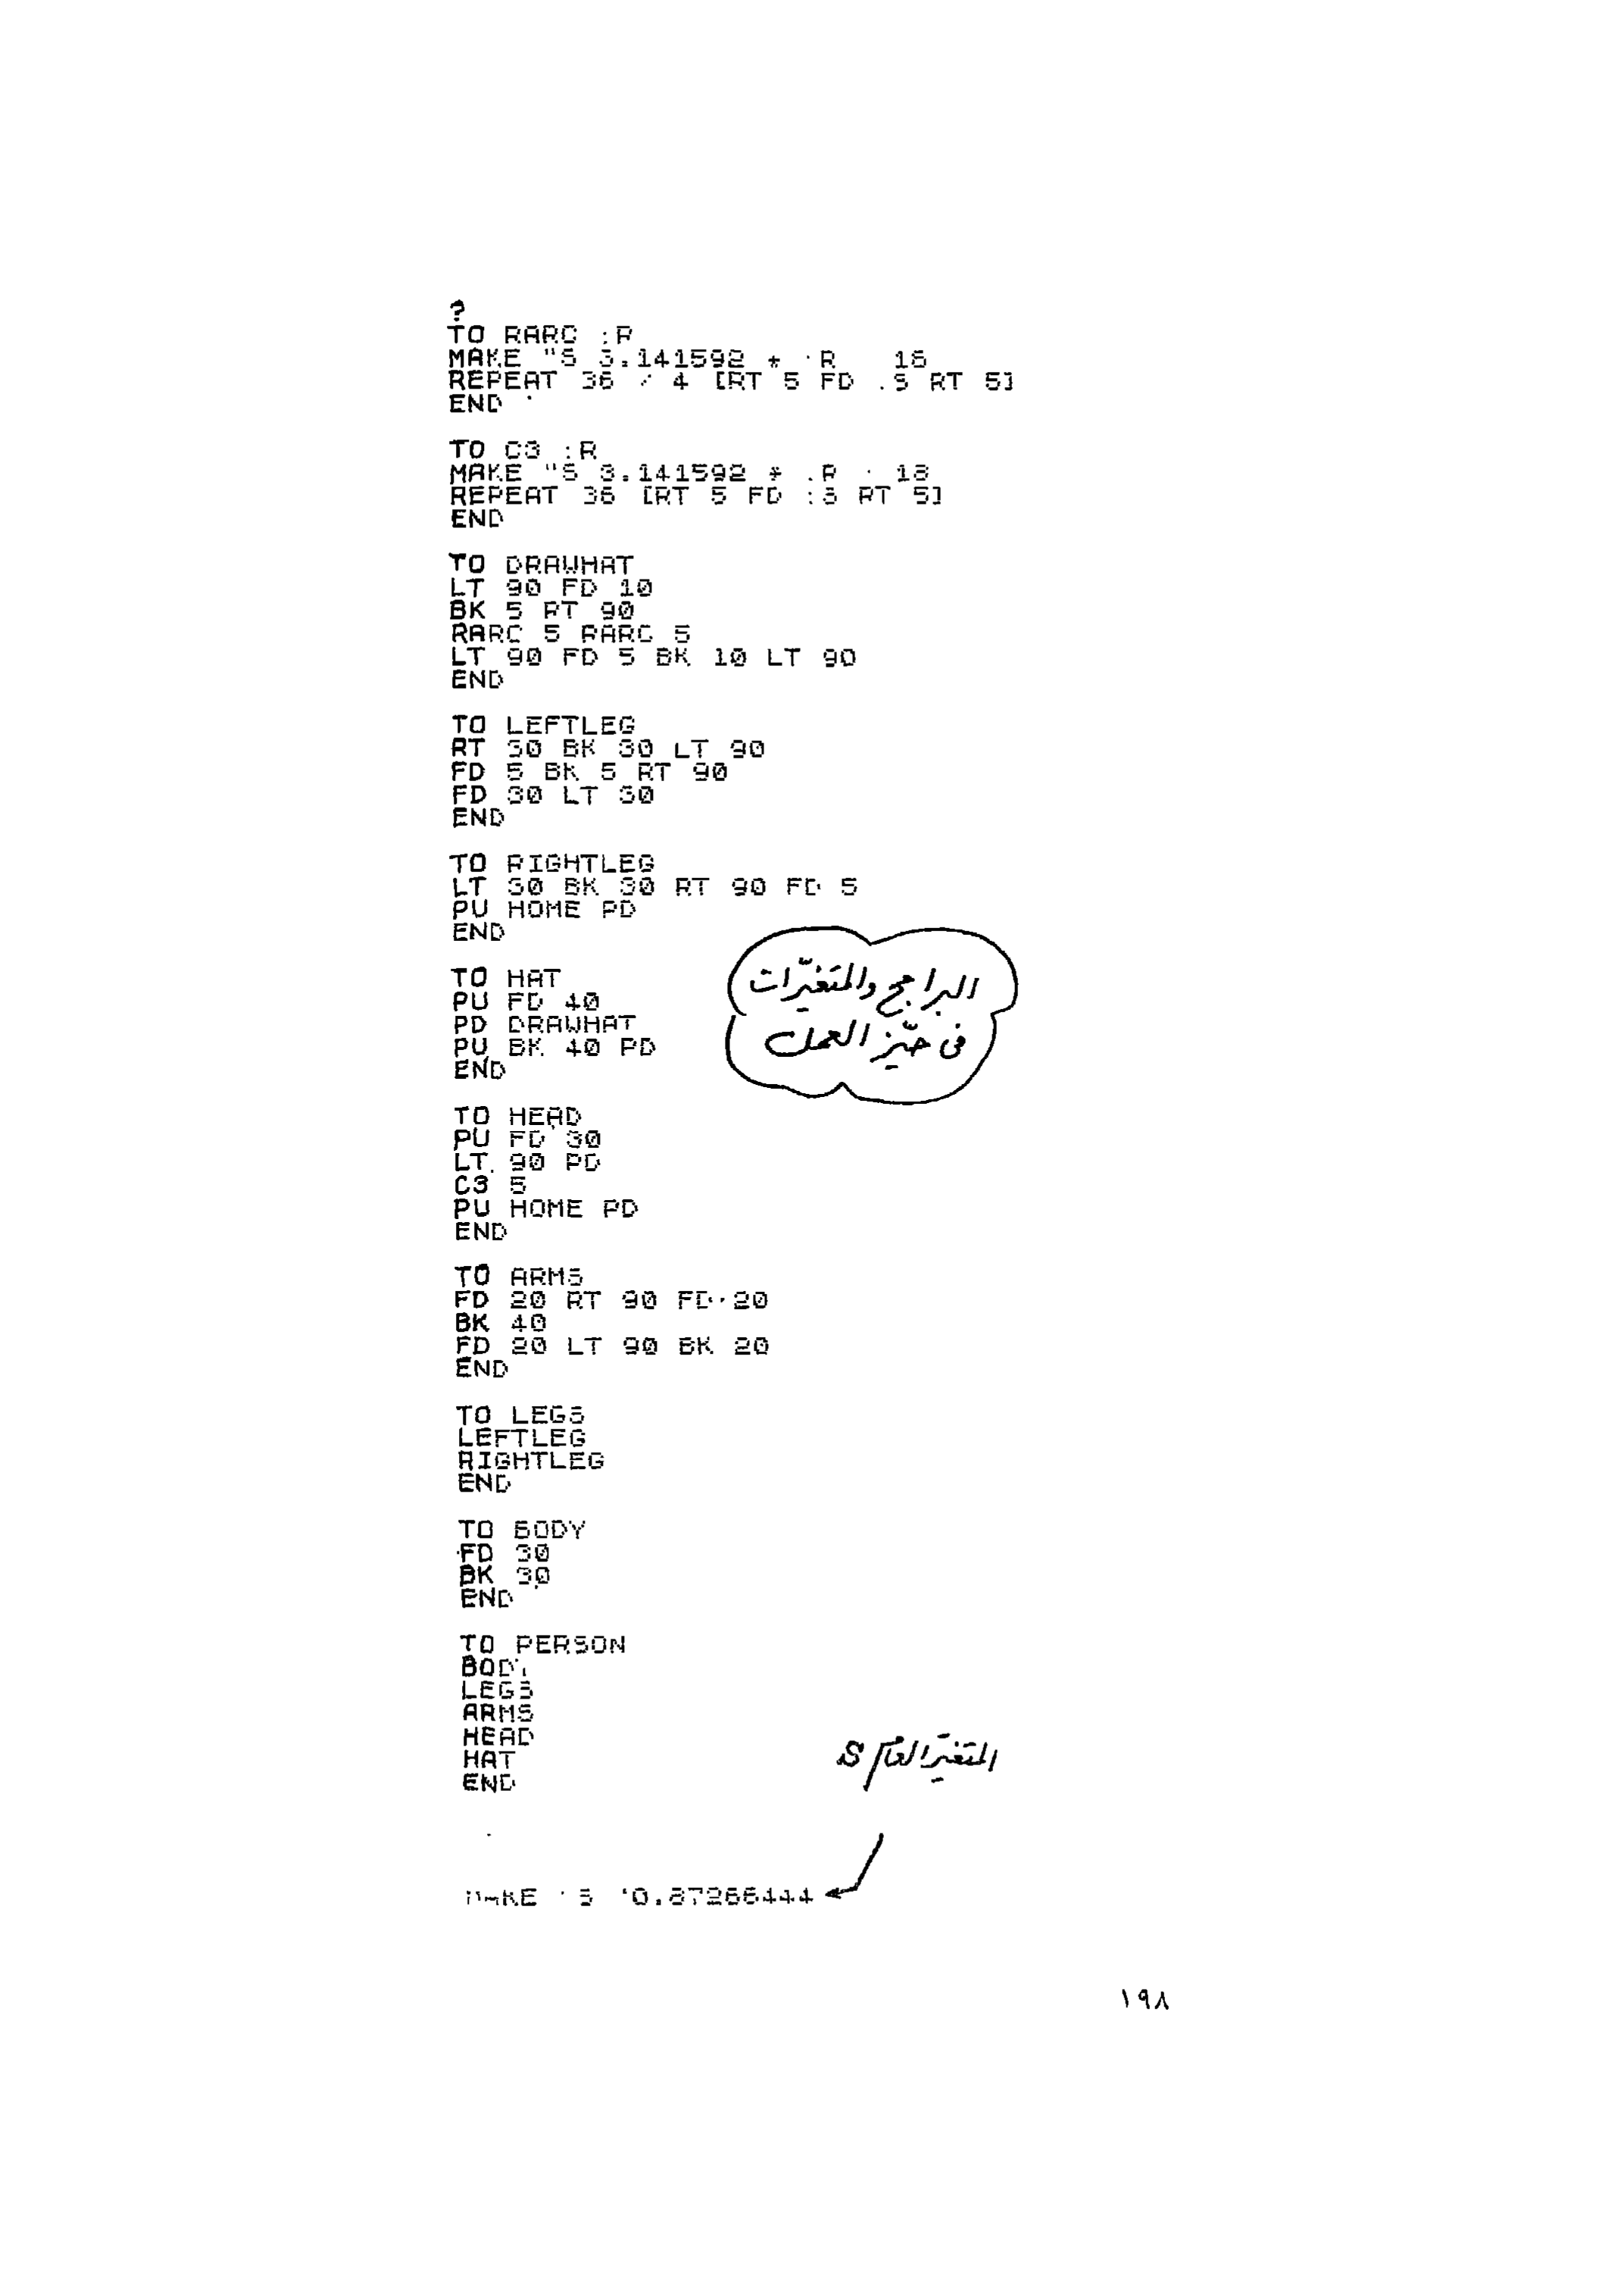 ?
TO RARC :R
MAKE "S 3.141592 * :R / 18
REPEAT 36 / 4 [RT 5 FD :S RT 5]
END
TO C3 :R
MAKE "S 3.141592 * :R / 18
REPEAT 36 [RT 5 FD :S RT 5]
END
TO DRAWHAT
LT 90 FD 10
BK 5 RT 90
RARC 5 RARC 5
LT 90 FD 5 BK 10 LT 90
END
TO LEFTLEG
RT 30 BK 30 LT 90
FD 5 BK 5 RT 90
FD 30 LT 30
END
TO RIGHTLEG
LT 30 BK 30 RT 90 FD 5
PU HOME PD
END
TO HAT
PU FD 40
PD DRAWHAT
PU BK 40 PD
END
البرامج والمتغيّرات
فى حيّز العمل
TO HEAD
PU FD 30
LT 90 PD
C3 5
PU HOME PD
END
TO ARMS
FD 20 RT 90 FD 20
BK 40
FD 20 LT 90 BK 20
END
TO LEGS
LEFTLEG
RIGHTLEG
END
TO BODY
FD 30
BK 30
END
TO PERSON
BODY
LEGS
ARMS
HEAD
HAT
END
المتغيّر العام S
MAKE "S "0.87266444
١٩٨